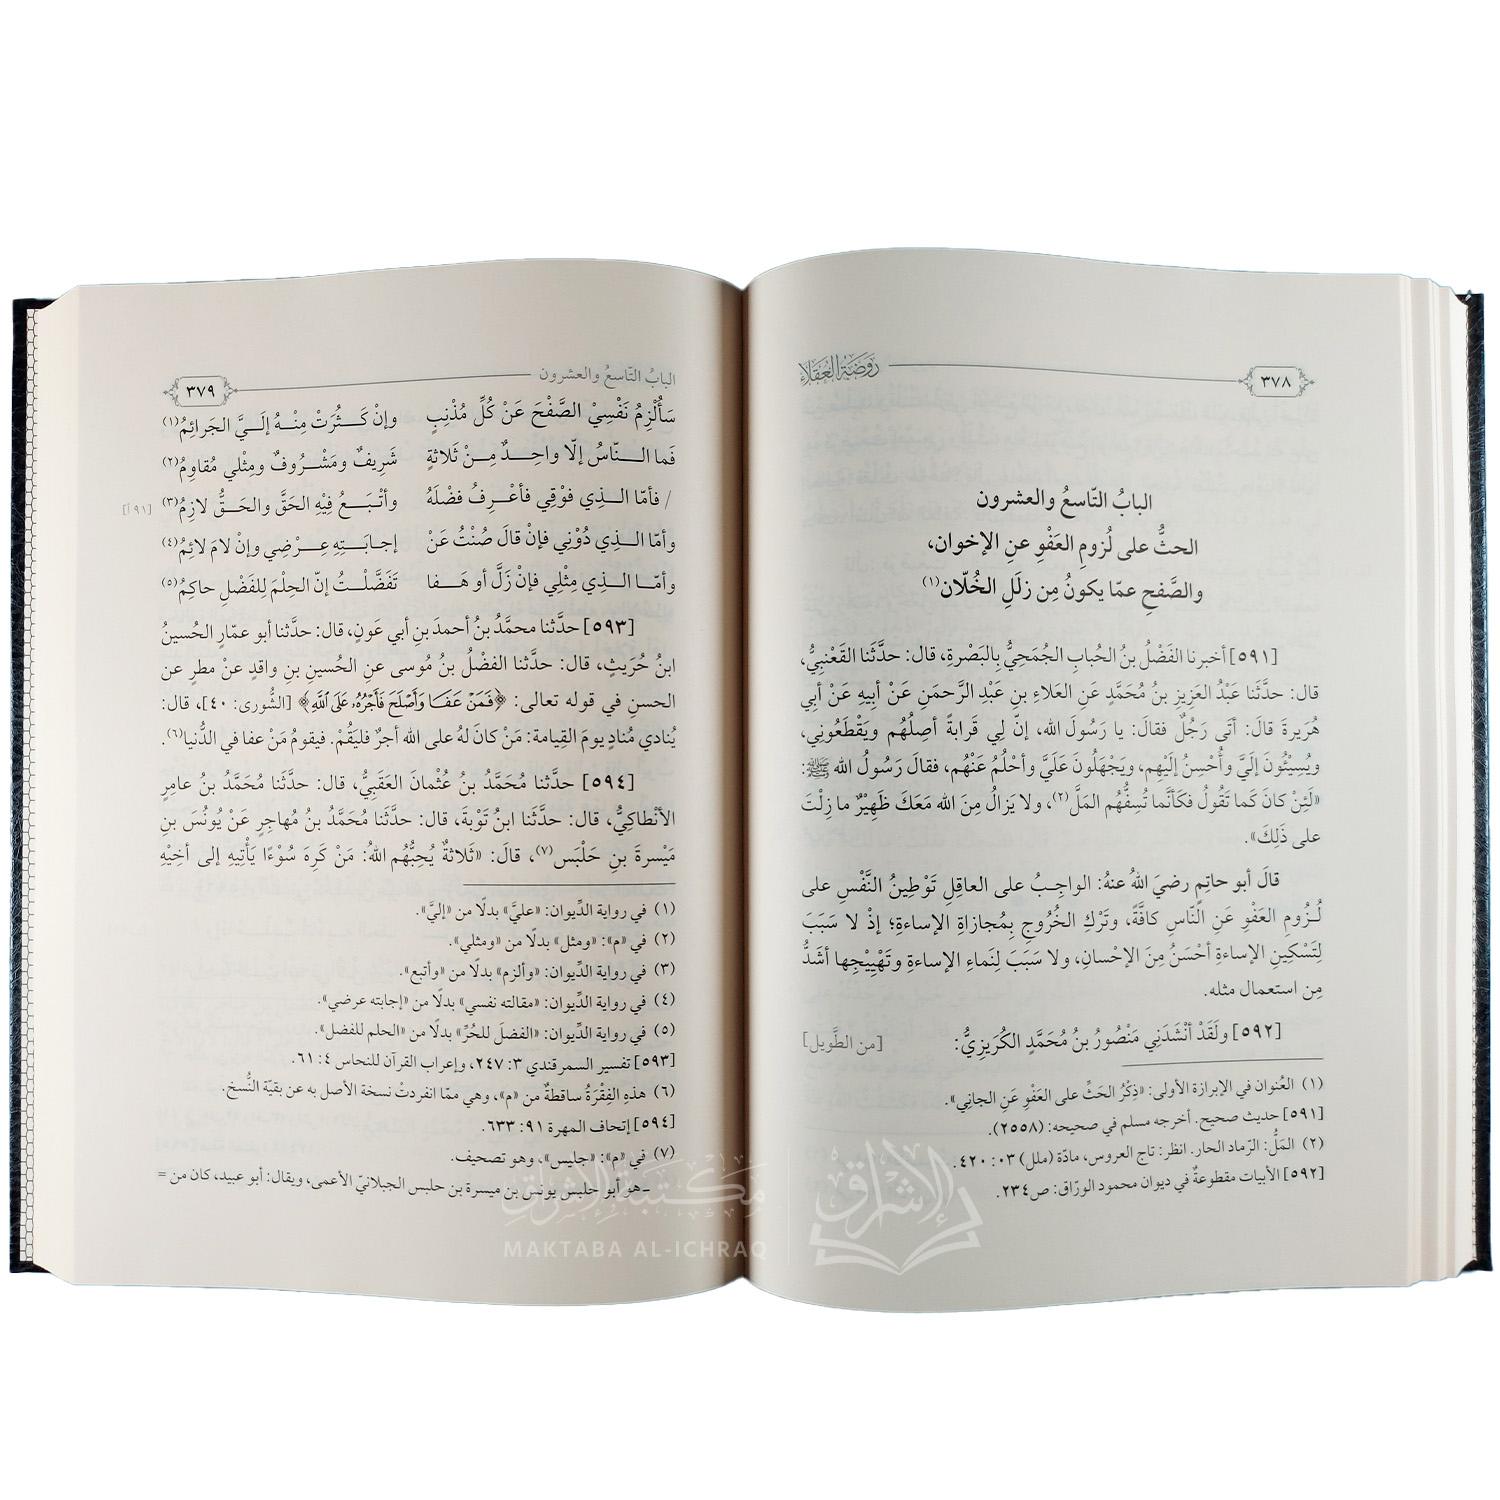 ٣٧٨
روضة العقلاء
البابُ التّاسعُ والعشرون
الحثُّ على لُزومِ العَفْوِ عنِ الإخوان،
والصَّفحِ عمّا يكونُ مِن زلَلِ الخُلّان(١)
[٥٩١] أخبرنا الفَضْلُ بنُ الحُبابِ الجُمَحِيُّ بِالبَصْرةِ، قال: حدَّثَنا القَعْنبِيُّ،
قال: حدَّثَنا عَبْدُ العَزِيزِ بنُ مُحَمَّدٍ عَنِ العَلاءِ بنِ عَبْدِ الرَّحمَنِ عَنْ أبِيهِ عَنْ أبِي
هُرَيرةَ قالَ: أتَى رَجُلٌ فقالَ: يا رَسُولَ الله، إنّ لِي قَرابةً أصِلُهُم ويَقْطَعُونِي،
ويُسِيئُونَ إلَيَّ وأُحْسِنُ إلَيْهِم، ويَجْهَلُونَ عَلَيَّ وأحْلُمُ عَنْهُم، فقالَ رَسُولُ الله ﷺ:
«لَئِنْ كانَ كَما تَقُولُ فكَأنَّما تُسِفُّهُم المَلَّ(٢)، ولا يَزالُ مِنَ الله مَعَكَ ظَهِيْرٌ ما زِلْتَ
على ذَلِكَ».
قالَ أبو حاتِمٍ رضيَ اللهُ عنهُ: الواجِبُ على العاقِلِ تَوْطِينُ النَّفْسِ على
لُزومِ العَفْوِ عَنِ النّاسِ كافّةً، وتَرْكِ الخُرُوجِ بِمُجازاةِ الإساءةِ؛ إذْ لا سَبَبَ
لِتَسْكِينِ الإساءةِ أحْسَنُ مِنَ الإحْسانِ، ولا سَبَبَ لِنَماءِ الإساءةِ وتَهْيِيْجِها أشَدُّ
مِن استعمال مثله.
[٥٩٢] ولَقَدْ أنْشَدَنِي مَنْصُورُ بنُ مُحَمَّدٍ الكُرَيزِيُّ: [من الطَّويل]
(١) العُنوان في الإبرازة الأولى: «ذِكْرُ الحَثِّ على العَفْوِ عَنِ الجانِي».
[٥٩١] حديث صحيح. أخرجه مسلم في صحيحه: (٢٥٥٨).
(٢) المَلُّ: الرّماد الحار. انظر: تاج العروس، مادّة (ملل) ٠٣: ٤٢٠.
[٥٩٢] الأبيات مقطوعةٌ في ديوان محمود الورّاق: ص٢٣٤.
البابُ التّاسعُ والعشرون
٣٧٩
سَأُلْزِمُ نَفْسِيْ الصَّفْحَ عَنْ كُلِّ مُذْنِبٍ وإنْ كَثُرَتْ مِنْهُ إلَيَّ الجَرائِمُ(١)
فَما النّاسُ إلّا واحِدٌ مِنْ ثَلاثةٍ شَرِيفٌ ومَشْرُوفٌ ومِثْلي مُقاوِمُ(٢)
/ فأمّا الذِي فوْقِي فأعْرِفُ فضْلَهُ وأتْبَعُ فِيْهِ الحَقَّ والحَقُّ لازِمُ(٣) [٩١أ]
وأمّا الذِي دُوْنِي فإنْ قالَ صُنْتُ عَنْ إجابَتِهِ عِرْضِي وإنْ لامَ لائِمُ(٤)
وأمّا الذِي مِثْلِي فإنْ زَلَّ أو هَفا تَفَضَّلْتُ إنّ الحِلْمَ لِلفَضْلِ حاكِمُ(٥)
[٥٩٣] حدَّثنا محمَّدُ بنُ أحمدَ بنِ أبي عَونٍ، قال: حدَّثنا أبو عمّارٍ الحُسينُ
ابنُ حُرَيثٍ، قال: حدَّثنا الفضْلُ بنُ مُوسى عنِ الحُسينِ بنِ واقدٍ عنْ مطرٍ عن
الحسنِ في قوله تعالى: ﴿فَمَنْ عَفَا وَأَصْلَحَ فَأَجْرُهُ عَلَى اللَّهِ﴾ [الشُّورى: ٤٠]، قال:
يُنادي مُنادٍ يومَ القِيامة: مَنْ كانَ لهُ على الله أجرٌ فليَقُمْ. فيقومُ مَنْ عفا في الدُّنيا(٦).
[٥٩٤] حدَّثنا مُحَمَّدُ بنُ عُثْمانَ العَقَبِيُّ، قال: حدَّثَنا مُحَمَّدُ بنُ عامِرٍ
الأنْطاكِيُّ، قال: حدَّثَنا ابنُ تَوْبةَ، قال: حدَّثَنا مُحَمَّدُ بنُ مُهاجِرٍ عَنْ يُونُسَ بنِ
مَيْسرةَ بنِ حَلْبَس(٧)، قالَ: «ثَلاثةٌ يُحِبُّهُم اللهُ: مَنْ كَرِهَ سُوْءًا يَأْتِيهِ إلى أخِيْهِ
(١) في رواية الدِّيوان: «عليَّ» بدلًا من «إليَّ».
(٢) في «م»: «ومثل» بدلًا من «ومثلي».
(٣) في رواية الدِّيوان: «وألزم» بدلًا من «وأتبع».
(٤) في رواية الدِّيوان: «مقالته نفسي» بدلًا من «إجابته عرضي».
(٥) في رواية الدِّيوان: «الفضلَ للحُرِّ» بدلًا من «الحلم للفضل».
[٥٩٣] تفسير السمرقندي ٣: ٢٤٧، وإعراب القرآن للنحاس ٤: ٦١.
(٦) هذهِ الفِقْرَةُ ساقطةٌ من «م»، وهي ممّا انفردتْ نسخة الأصل به عن بقيّة النُّسخ.
[٥٩٤] إتحاف المهرة ٩١: ٦٣٣.
(٧) في «م»: «جليس»، وهو تصحيف.
ـ هو أبو حلبس يونس بن ميسرة بن حلبس الجبلانيّ الأعمى، ويقال: أبو عبيد، كان من =
مكتبة الإشراق
MAKTABA AL-ICHRAQ
الإشراق